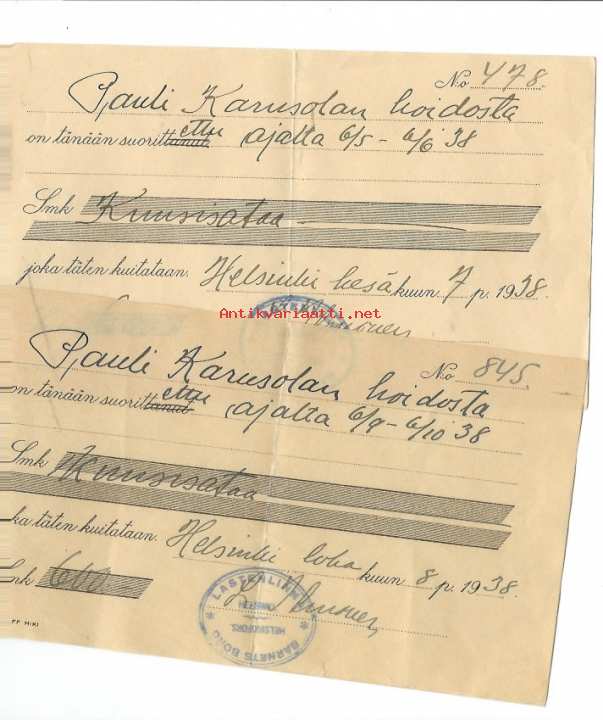 No 478.
Pauli Karusolan hoidosta
on tänään suorittanut ettu ajalta 6/5 - 6/6 38
Smk Kuusisataa
joka täten kuitataan. Helsinki kesä kuun 7 p. 1938.
Antikvariaatti.net
No 845.
Pauli Karusolan hoidosta
on tänään suorittanut ettu ajalta 6/9 - 6/10 38
Smk Kuusisataa
ka täten kuitataan. Helsinki loka kuun 8 p. 1938.
mk 600
LASTENLINNA
HELSINGFORS.
BARNETS BORG